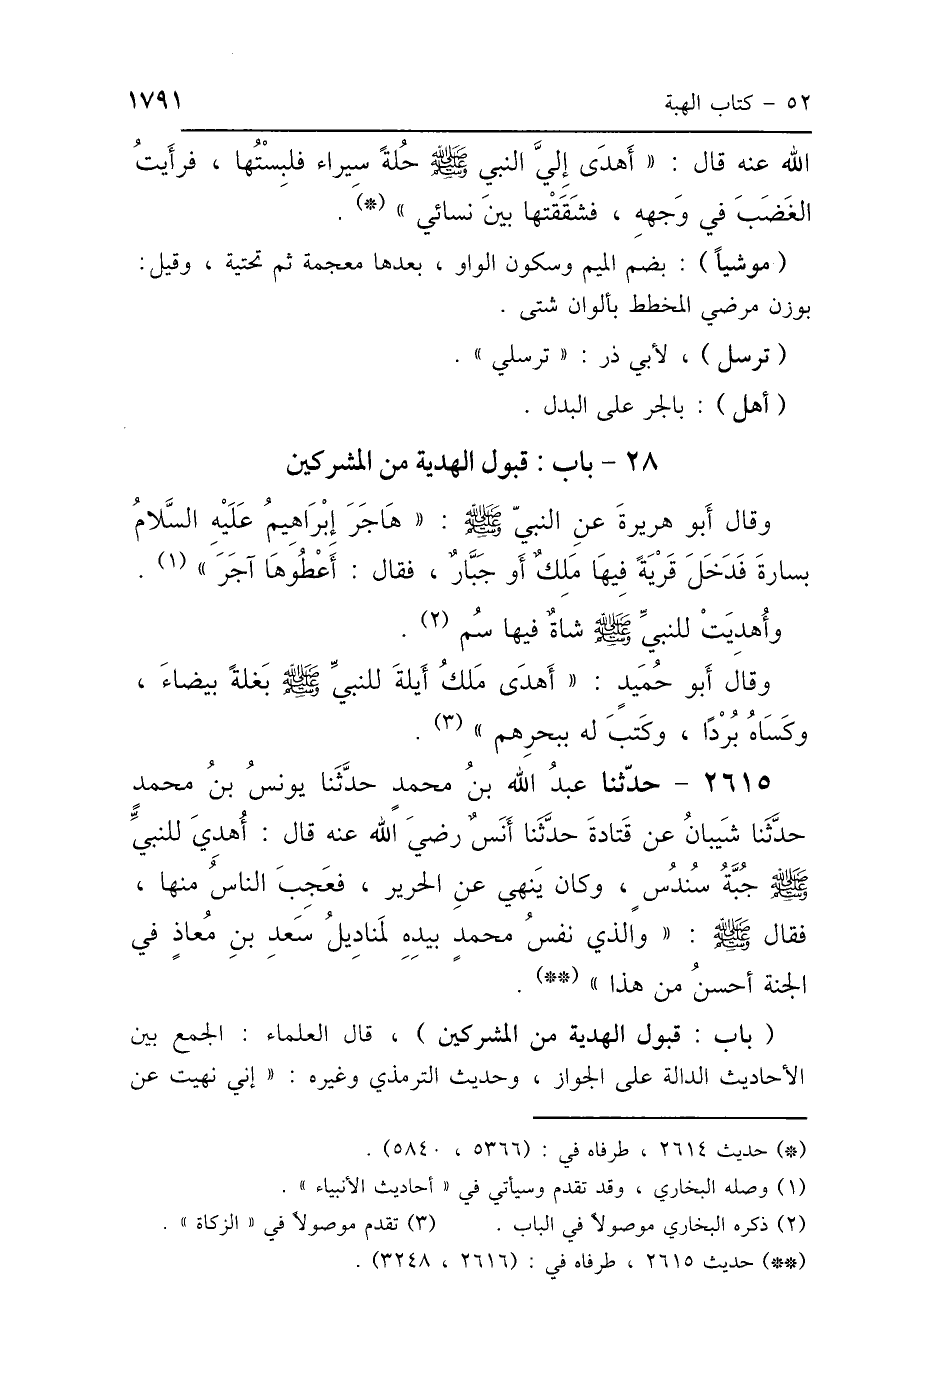 ٥٢ - كتاب الهبة ١٧٩١
الله عنه قال : « أَهدَى إِليَّ النبي ﷺ حُلةً سِيراء فلبِسْتُها ، فرأَيتُ
الغَضَبَ في وَجههِ ، فشَقَقْتها بينَ نسائي » (*) .
( موشياً ) : بضم الميم وسكون الواو ، بعدها معجمة ثم تحتية ، وقيل :
بوزن مرضي المخطط بألوان شتى .
( ترسل ) ، لأبي ذر : « ترسلي » .
( أهل ) : بالجر على البدل .
٢٨ - باب : قبول الهدية من المشركين
وقال أَبو هريرةَ عنِ النبيّ ﷺ : « هَاجَرَ إِبْرَاهِيمُ عَلَيْهِ السَّلامُ
بسارةَ فَدَخَلَ قَرْيَةً فِيهَا مَلِكٌ أَو جَبَّارٌ ، فقال : أَعْطُوهَا آجَرَ » (١) .
وأُهدِيَتْ للنبيِّ ﷺ شاةٌ فيها سُم (٢) .
وقال أَبو حُمَيدٍ : « أَهدَى مَلكُ أَيلةَ للنبيِّ ﷺ بَغلةً بيضاءَ ،
وكَسَاهُ بُرْدًا ، وكَتبَ له ببحرِهم » (٣) .
٢٦١٥ - حدّثنا عبدُ الله بنُ محمدٍ حدَّثَنا يونسُ بنُ محمد
حدَّثَنا شَيبانُ عن قَتادةَ حدثَّنا أَنَسٌ رضيَ الله عنه قال : أُهدِيَ للنبيِّ
ﷺ جبَّةُ سُندُسٍ ، وكان يَنهي عنِ الحرير ، فعَجِبَ الناسُ منها ،
فقال ﷺ : « والذي نفسُ محمدٍ بيدهِ لَمناديلُ سَعدِ بنِ مُعاذٍ في
الجنة أَحسنُ من هذا » (**) .
( باب : قبول الهدية من المشركين ) ، قال العلماء : الجمع بين
الأحاديث الدالة على الجواز ، وحديث الترمذي وغيره : « إني نهيت عن
(*) حديث ٢٦١٤ ، طرفاه في : (٥٣٦٦ ، ٥٨٤٠) .
(١) وصله البخاري ، وقد تقدم وسيأتي في « أحاديث الأنبياء » .
(٢) ذكره البخاري موصولاً في الباب . (٣) تقدم موصولاً في « الزكاة » .
(**) حديث ٢٦١٥ ، طرفاه في : (٢٦١٦ ، ٣٢٤٨) .